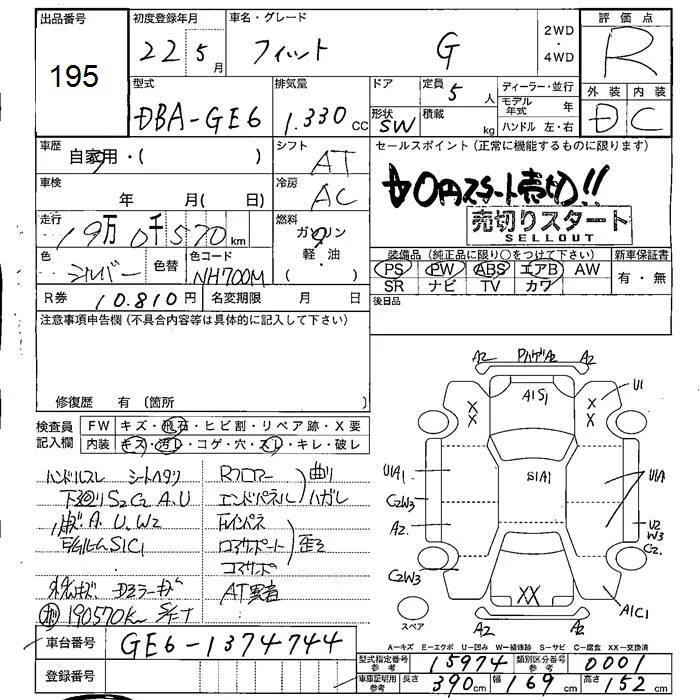 出品番号 初度登録年月 車名・グレード 2WD・4WD 評価点
195 22年5月 フィット G R
型式 排気量 ドア 定員 ディーラー・並行 外装 内装
DBA-GE6 1.330cc 5人 モデル年式 年 D C
形状 SW 積載 kg ハンドル 左・右
車歴 自家用・( ) シフト AT セールスポイント (正常に機能するものに限ります)
車検 年 月(日) 冷房 AC 0円スタート売切!!
売切りスタート
SELLOUT
走行 19万0千570km 燃料 ガソリン 軽・油 ( )
色 シルバー 色替 色コード NH700M
装備品 (純正品に限り○をつけて下さい) 新車保証書
PS PW ABS エアB AW 有・無
SR ナビ TV カワ
R券 10.810円 名変期限 月 日 後日品
注意事項申告欄 (不具合内容等は具体的に記入して下さい)
修復歴 有 (箇所
検査員記入欄 FW キズ・飛石・ヒビ割・リペア跡・X要
内装 キズ・汚レ・コゲ・穴・スレ・キレ・破レ
ハンドルスレ シートヘタリ Rフロアー 曲り
下廻りS2C2 A.U エンドパネル ハガレ
A.U.W2 インパネ
S1C1 コアサポート 歪ミ
コアサポ
ドアミラーキズ AT
190570Km
A2 PハゲA2 A2
U1
A1S1
X X X X
U1A1 S1A1 U1A
C2W3 U2 W3
A2 C2
C2W3
XX A1C1
スペア A2 A2
A-キズ E-エクボ U-凹み W-補修跡 S-サビ C-腐食 XX-交換済
車台番号 GE6-1374744
型式指定番号 参考 15974 類別区分番号 参考 0001
登録番号
車庫証明用 参考 長さ 390cm 幅 169cm 高さ 152cm